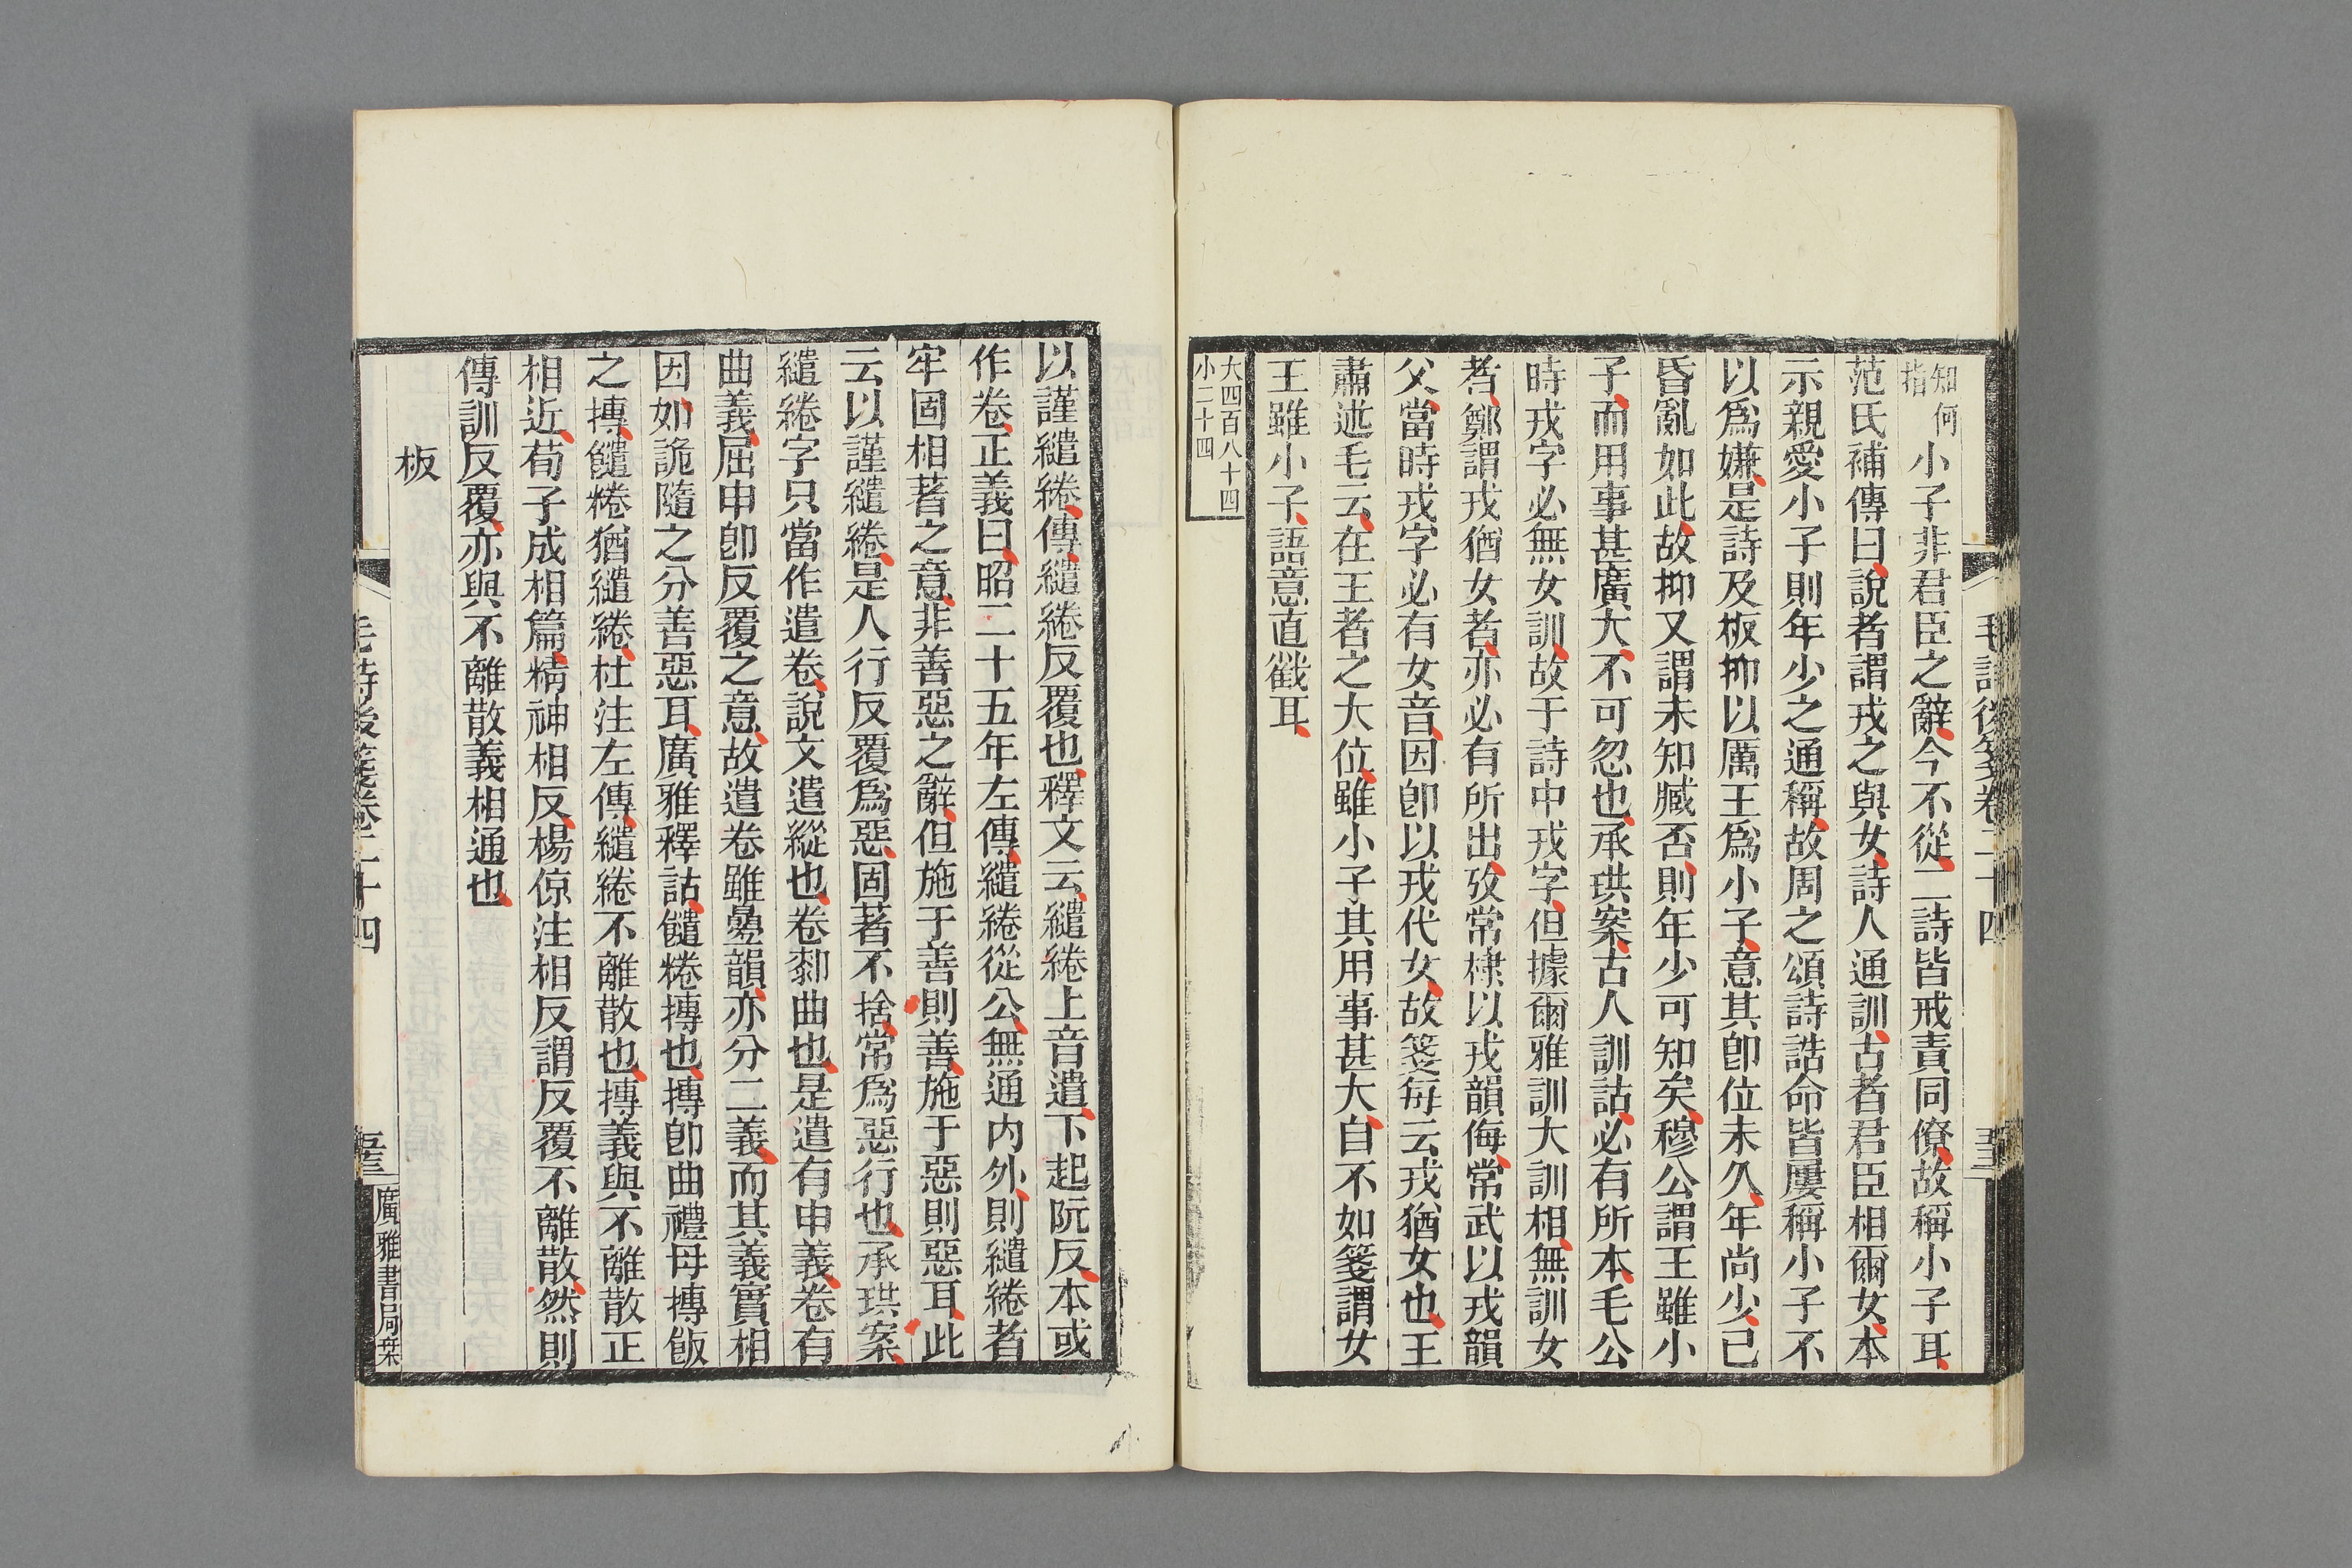 毛詩後箋卷二十四
五三
知何
指
小子非君臣之辭今不從二詩皆戒責同僚故稱小子耳
范氏補傳曰說者謂戎之與女詩人通訓古者君臣相爾女本
示親愛小子則年少之通稱故周之頌詩誥命皆屢稱小子不
以爲嫌是詩及板抑以厲王爲小子意其卽位未久年尚少已
昏亂如此故抑又謂未知臧否則年少可知矣穆公謂王雖小
子而用事甚廣大不可忽也承珙案古人訓詁必有所本毛公
時戎字必無女訓故于詩中戎字但據爾雅訓大訓相無訓女
者鄭謂戎猶女者亦必有所出攷常棣以戎韻侮常武以戎韻
父當時戎字必有女音因卽以戎代女故箋每云戎猶女也王
肅述毛云在王者之大位雖小子其用事甚大自不如箋謂女
王雖小子語意直截耳
大四百八十四
小二十四
以謹繾綣傳繾綣反覆也釋文云繾綣上音遣下起阮反本或
作卷正義曰昭二十五年左傳繾綣從公無通內外則繾綣者
牢固相著之意非善惡之辭但施于善則善施于惡則惡耳此
云以謹繾綣是人行反覆爲惡固著不捨常爲惡行也承珙案
繾綣字只當作遣卷說文遣縱也卷厀曲也是遣有申義卷有
曲義屈申卽反覆之意故遣卷雖疊韻亦分二義而其義實相
因如詭隨之分善惡耳廣雅釋詁䭤䊎摶也摶卽曲禮毋摶飯
之摶䭤䊎猶繾綣杜注左傳繾綣不離散也摶義與不離散正
相近荀子成相篇精神相反楊倞注相反謂反覆不離散然則
傳訓反覆亦與不離散義相通也
板
毛詩後箋卷二十四
五三
廣雅書局栞